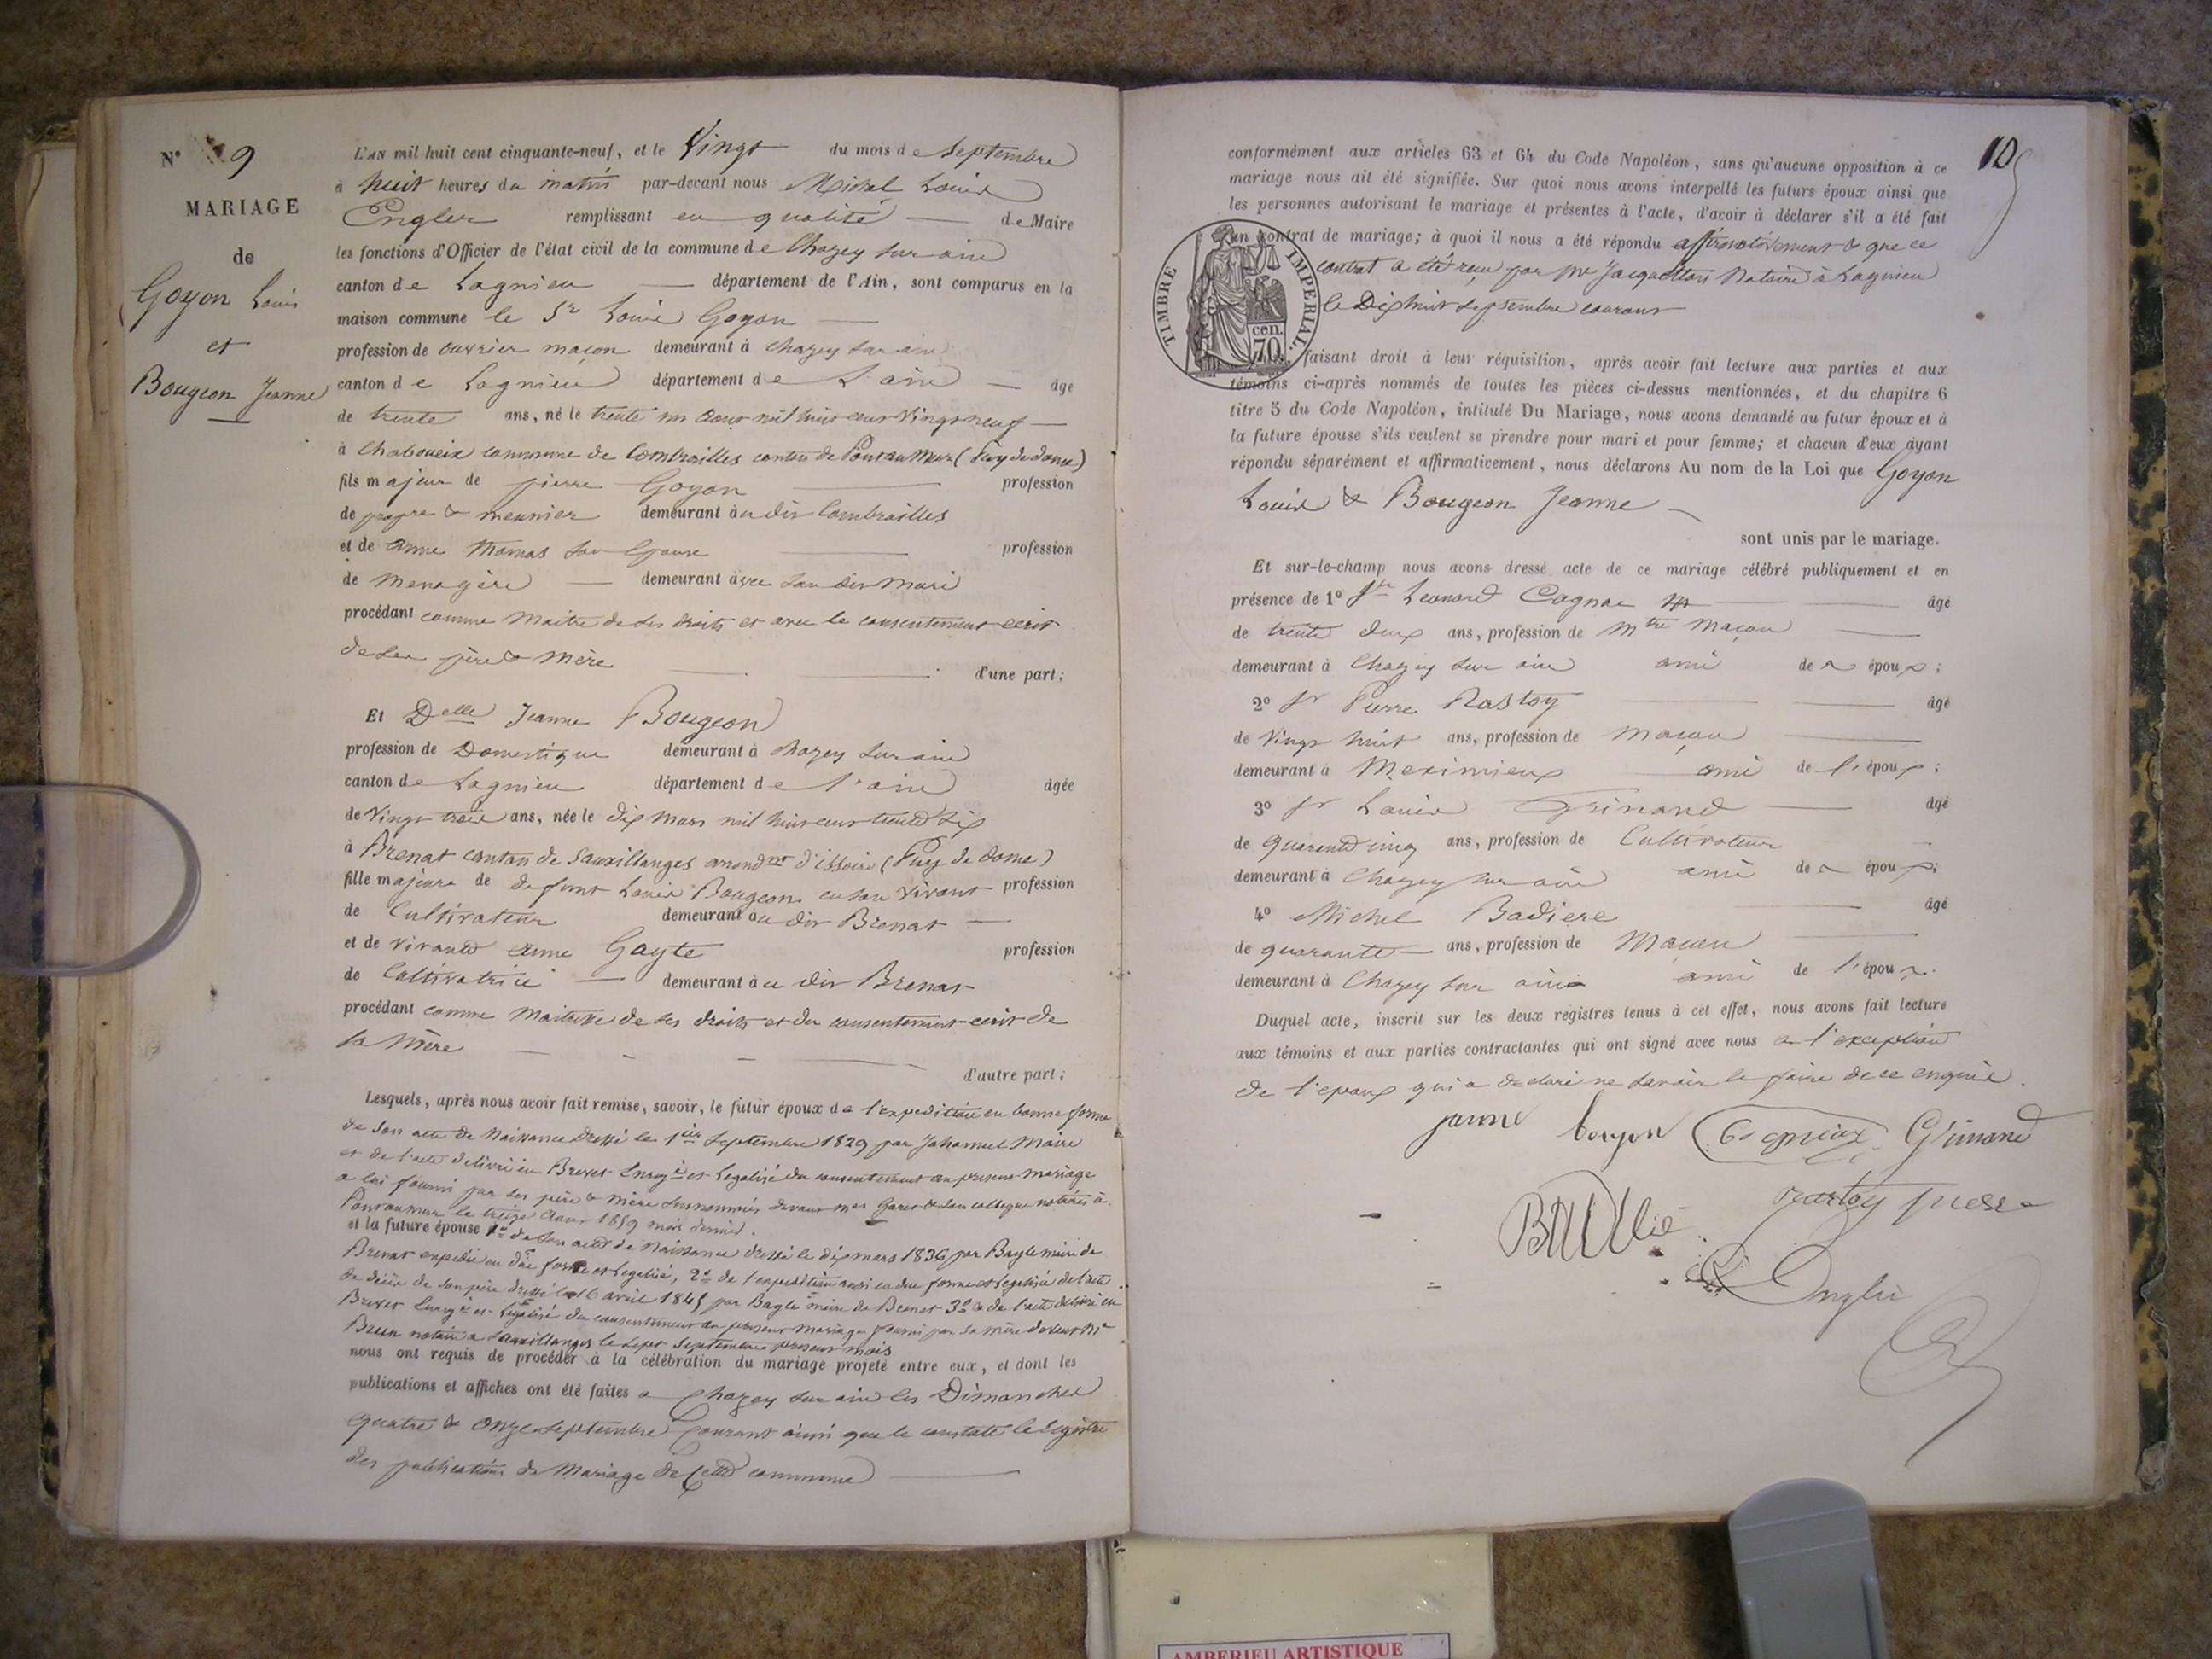 N° 9
MARIAGE
de
Goyon Louis
et
Bougeon Jeanne
L'AN mil huit cent cinquante-neuf, et le Vingt du mois de Septembre
à huit heures du matin par-devant nous Michel Louis
Engler remplissant en qualité de Maire
les fonctions d'Officier de l'état civil de la commune de Chazey sur ain
canton de Lagnieu département de l'Ain, sont comparus en la
maison commune le Sr Louis Goyon
profession de ouvrier maçon demeurant à Chazey sur ain
canton de Lagnieu département de L'ain âgé
de trente ans, né le trente un aout mil huit cent Vingt neuf
à Chaboueix commune de Combrailles canton de Pontaumur (Puy de dome)
fils majeur de pierre Goyon profession
de propre & meunier demeurant au dit Combrailles
et de anne thomas son Epouse profession
de menagère demeurant avec son dit mari
procédant comme Maitre de ses droits et avec le consentement ecrit
de ses père & mère d'une part;
Et Delle Jeanne Bougeon
profession de Domestique demeurant à Chazey sur ain
canton de Lagnieu département de l'ain âgée
de Vingt trois ans, née le dix mars mil huit cent trente six
à Brenat canton de Sauxillanges arrondnt d'issoire (Puy de dome)
fille majeure de defunt Louis Bougeon en son vivant profession
de Cultivateur demeurant au dit Brenat
et de vivante anne Gayte profession
de Cultivatrice demeurant au dit Brenat
procédant comme Maitresse de ses droits et du consentement ecrit de
sa Mère
d'autre part;
Lesquels, après nous avoir fait remise, savoir, le futur époux de l'expedition en bonne forme
de son acte de Naissance dressé le 1ier Septembre 1829 par Maire
et de l'acte delivré en Brevet Enregé et Legalisé du consentement au present mariage
a lui fourni par ses père & mère susnommés devant mes Garet & son collegue notaires à
Pontaumur le treize Aout 1859 mois dernier.
et la future épouse 1° de son acte de Naissance dressé le dix mars 1836 par Bayle maire de
Brenat expedié en due forme et Legalisé, 2° de l'expedition aussi en due forme et Legalisée de l'acte
de décès de son père dressé le 16 avril 1845 par Bayle maire de Brenat 3° & de l'acte delivré en
Brevet Enregé et Legalisé du consentement au present mariage fourni par sa mère devant Me
Brun notaire a Sauxillanges le sept Septembre present mois
nous ont requis de procéder à la célébration du mariage projeté entre eux, et dont les
publications et affiches ont été faites a Chazey sur ain les Dimanches
quatre & onze septembre Courant ainsi que le constate le registre
des publications de Mariage de Cette commune
10
conformément aux articles 63 et 64 du Code Napoléon, sans qu'aucune opposition à ce
mariage nous ait été signifiée. Sur quoi nous avons interpellé les futurs époux ainsi que
les personnes autorisant le mariage et présentes à l'acte, d'avoir à déclarer s'il a été fait
un contrat de mariage; à quoi il nous a été répondu affirmativement & que ce
contrat a été reçu par Me Jacquettton Notaire à Lagnieu
le Dix huit Septembre courant
TIMBRE IMPERIAL.
70 cen.
Nous, faisant droit à leur réquisition, après avoir fait lecture aux parties et aux
témoins ci-après nommés de toutes les pièces ci-dessus mentionnées, et du chapitre 6
titre 5 du Code Napoléon, intitulé Du Mariage, nous avons demandé au futur époux et à
la future épouse s'ils veulent se prendre pour mari et pour femme; et chacun d'eux ayant
répondu séparément et affirmativement, nous déclarons Au nom de la Loi que Goyon
Louis & Bougeon Jeanne
sont unis par le mariage.
Et sur-le-champ nous avons dressé acte de ce mariage célébré publiquement et en
présence de 1° Sr Leonard Cognac âgé
de trente deux ans, profession de Mtre Maçon
demeurant à Chazey sur ain ami de époux;
2° Sr Pierre Rastoy âgé
de Vingt huit ans, profession de maçon
demeurant à Meximieux ami de l'époux;
3° Sr Louis Grinand âgé
de quarente cinq ans, profession de Cultivateur
demeurant à Chazey sur ain ami de époux;
4° Michel Badiere âgé
de quarante ans, profession de Maçon
demeurant à Chazey sur ain ami de l'époux.
Duquel acte, inscrit sur les deux registres tenus à cet effet, nous avons fait lecture
aux témoins et aux parties contractantes qui ont signé avec nous a l'exception
de l'epoux qui a declaré ne savoir le faire de ce enquis.
janne
rastoy pierre
Engler
AMBERIEU ARTISTIQUE